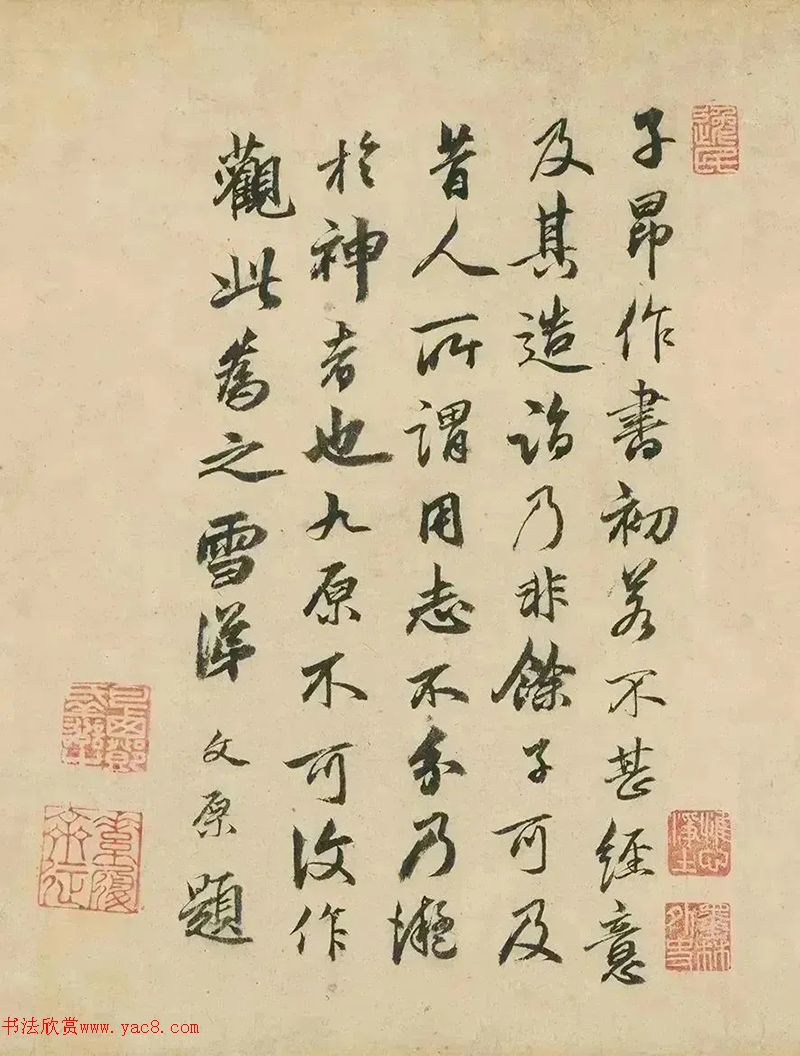 子昂作書初若不甚經意
及其造詣乃非餘子可及
昔人所謂用志不分乃凝
於神者也九原不可復作
觀此為之雪涕
文原題
书法欣赏www.yac8.com